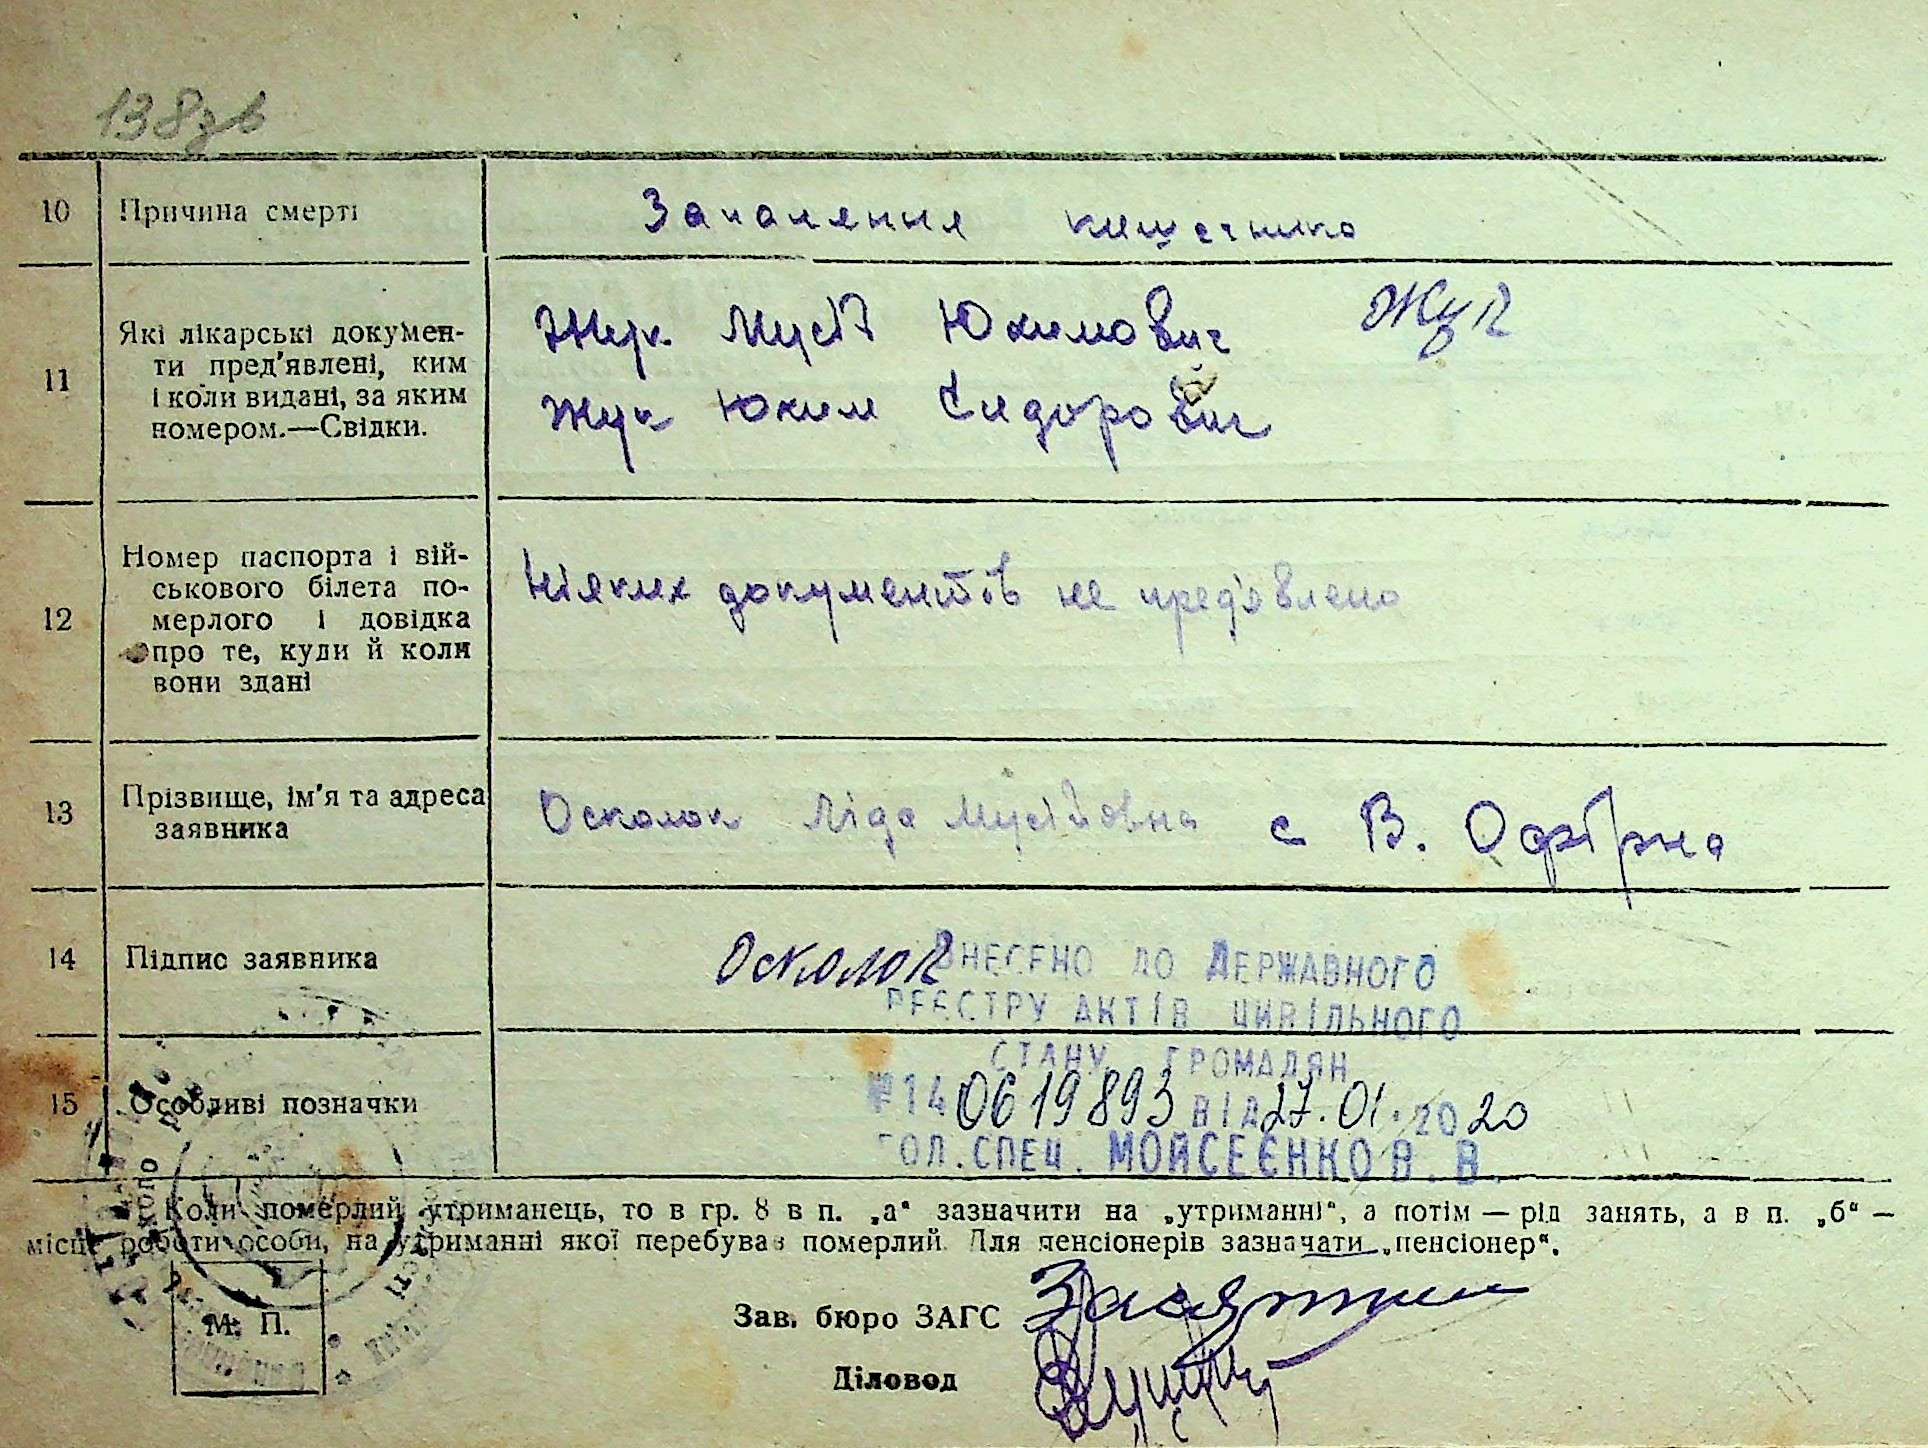 138зв
10 Причина смерті Запалення кишечника
11 Які лікарські докумен-
ти пред'явлені, ким
і коли видані, за яким
номером.—Свідки.
Жук Мусій Юхимович Жук
Жук Юхим Сидорович
12 Номер паспорта і вій-
ськового білета по-
мерлого і довідка
про те, куди й коли
вони здані
Ніяких документів не пред'явлено
13 Прізвище, ім'я та адреса
заявника
Осколок Ліда Мусійовна с В. Офірна
14 Підпис заявника Осколок
ВНЕСЕНО ДО ДЕРЖАВНОГО
РЕЄСТРУ АКТІВ ЦИВІЛЬНОГО
СТАНУ ГРОМАДЯН
15 Особливі позначки
№14 0619893 ВІД 27.01.2020
ГОЛ.СПЕЦ. МОЙСЕЄНКО В.В.
Коли померлий утриманець, то в гр. 8 в п. „а“ зазначити на „утриманні“, а потім — рід занять, а в п. „б“ —
місце роботи особи, на утриманні якої перебував померлий. Для пенсіонерів зазначати „пенсіонер“.
Зав. бюро ЗАГС
М. П.
Діловод